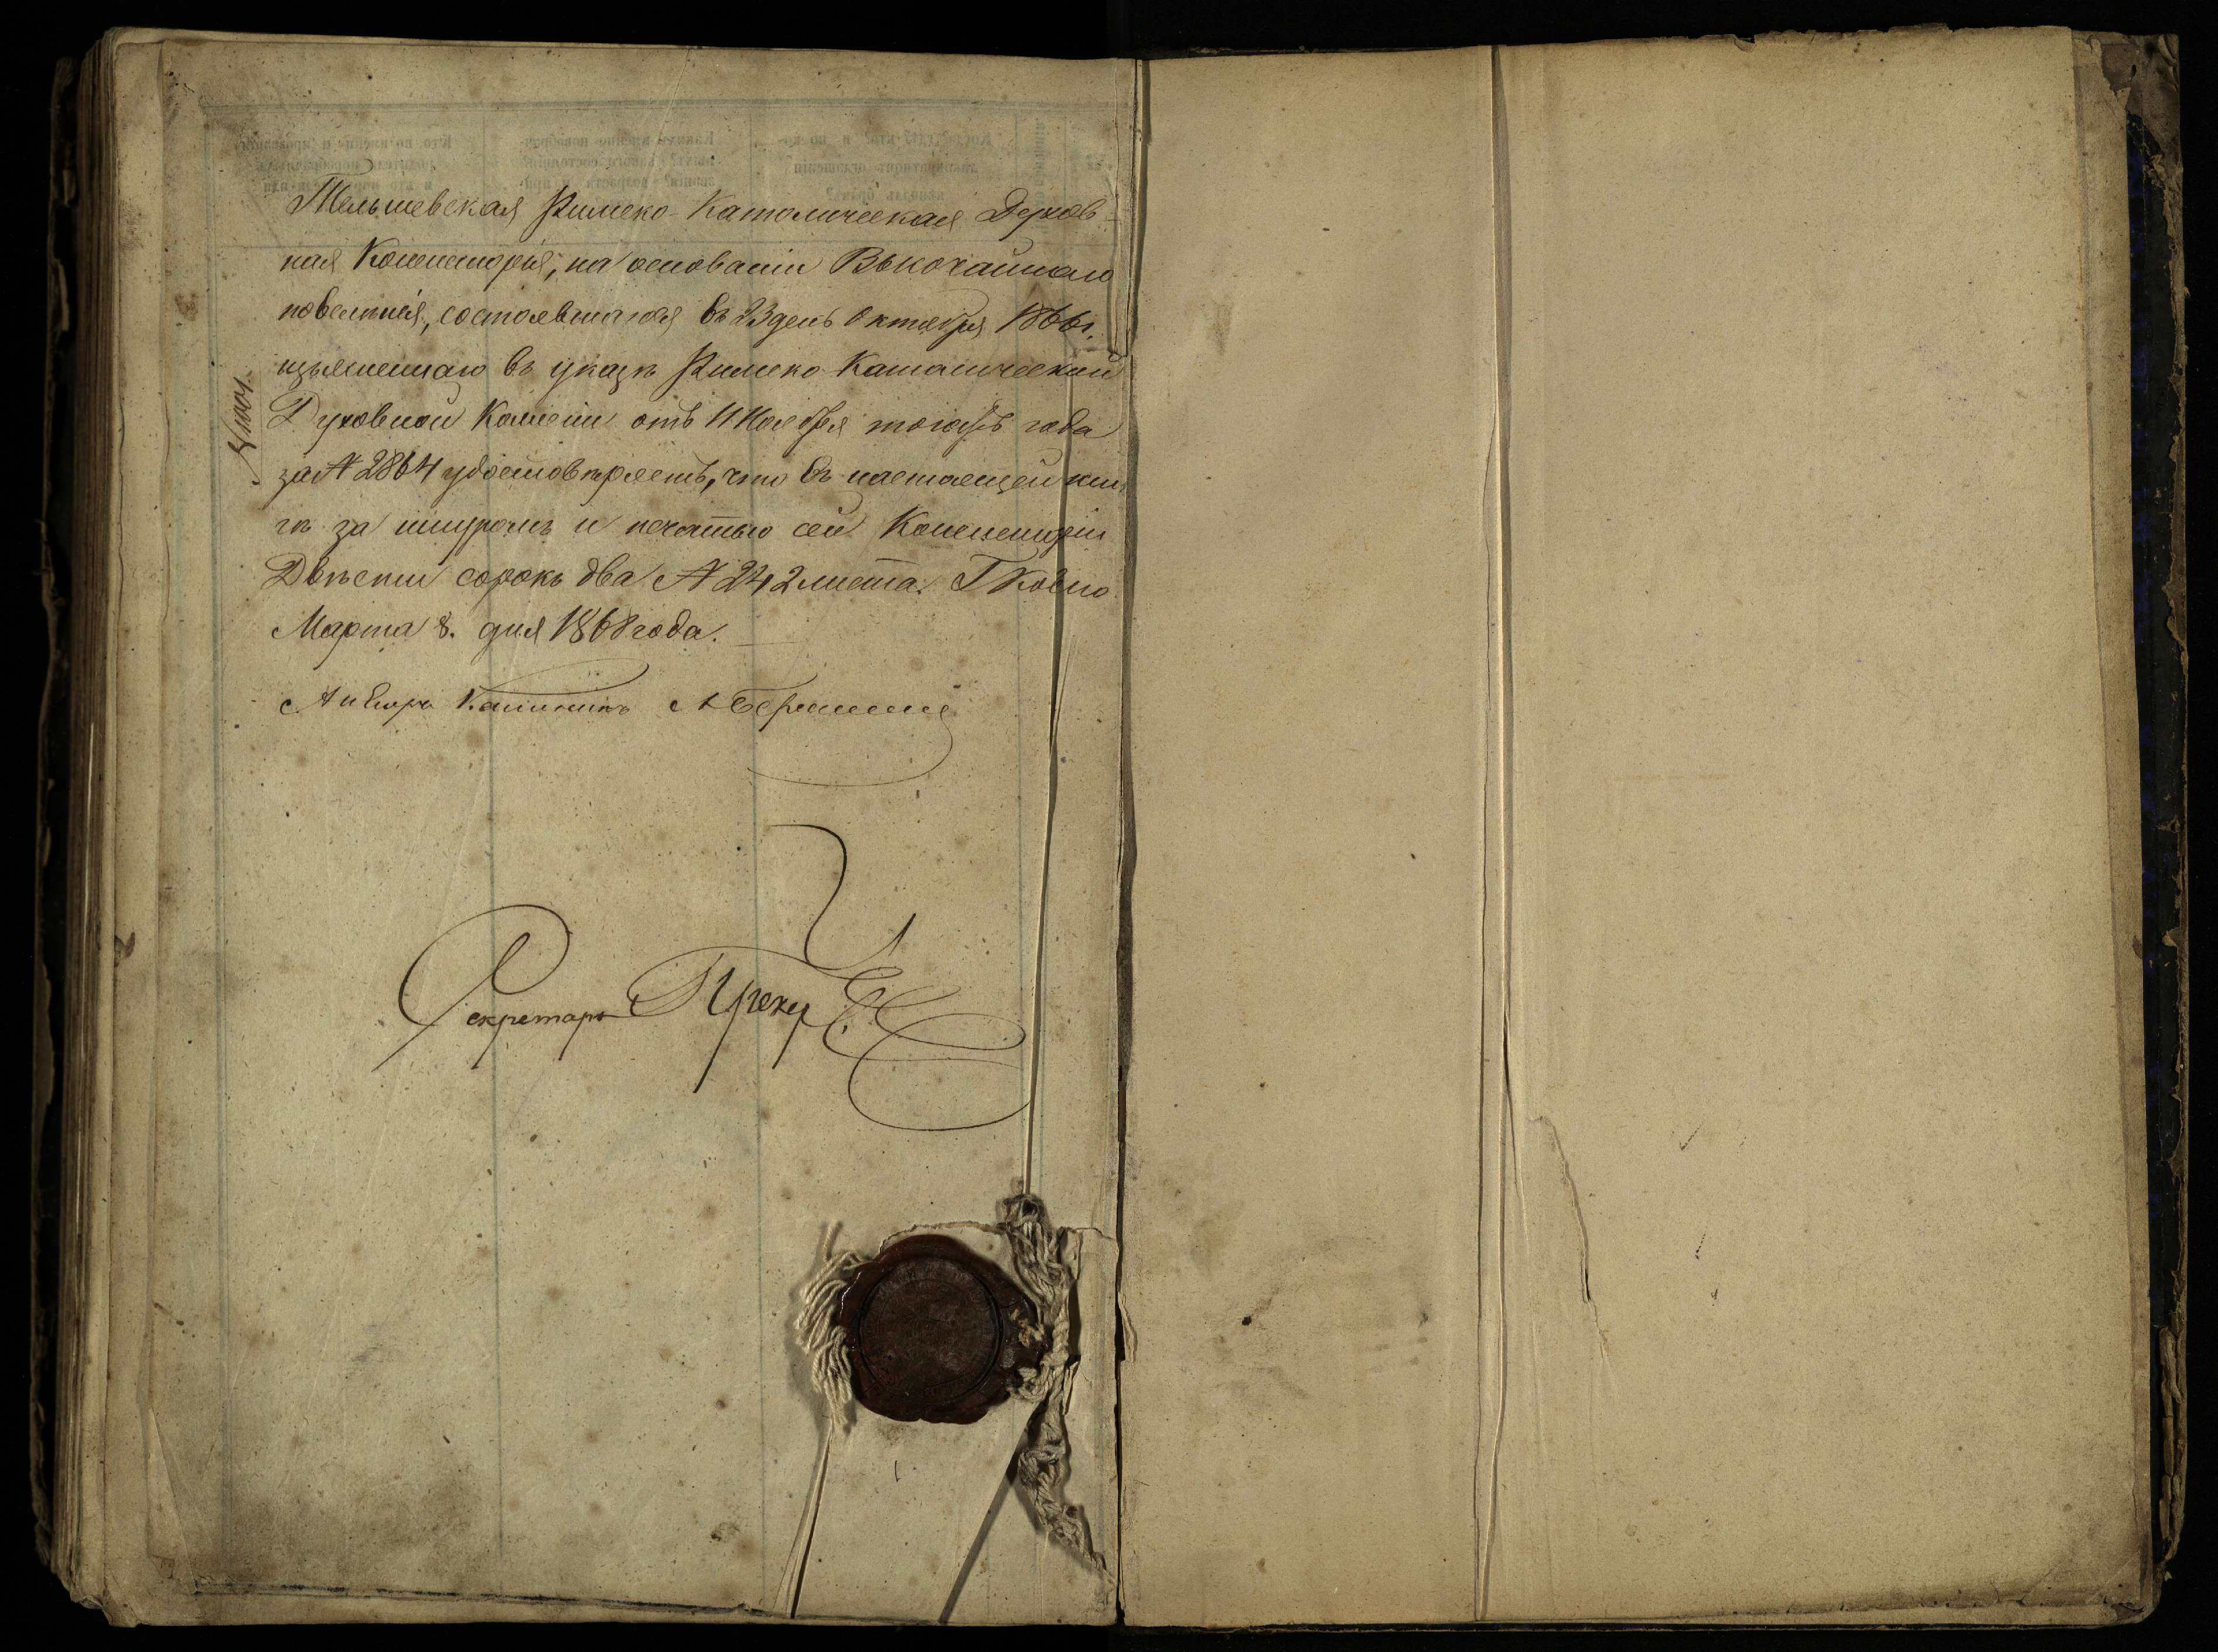 Тельшевская Римско-Католическая Духов-
ная Консисторія, на основаніи Высочайшаго
повелѣнія, состоявшагося въ 23 день Октября 1866 г.
изъясненнаго въ указѣ Римско-Католической
Духовной Коллегіи отъ 11 Ноября тогожъ года
за № 2864 удостовѣряетъ, что въ настоящей кни-
гѣ за шнуромъ и печатью сей Консисторіи
Двѣсти сорокъ два № 242 листа. Г. Ковно
Марта 8. дня 1868 года.
Секретарь